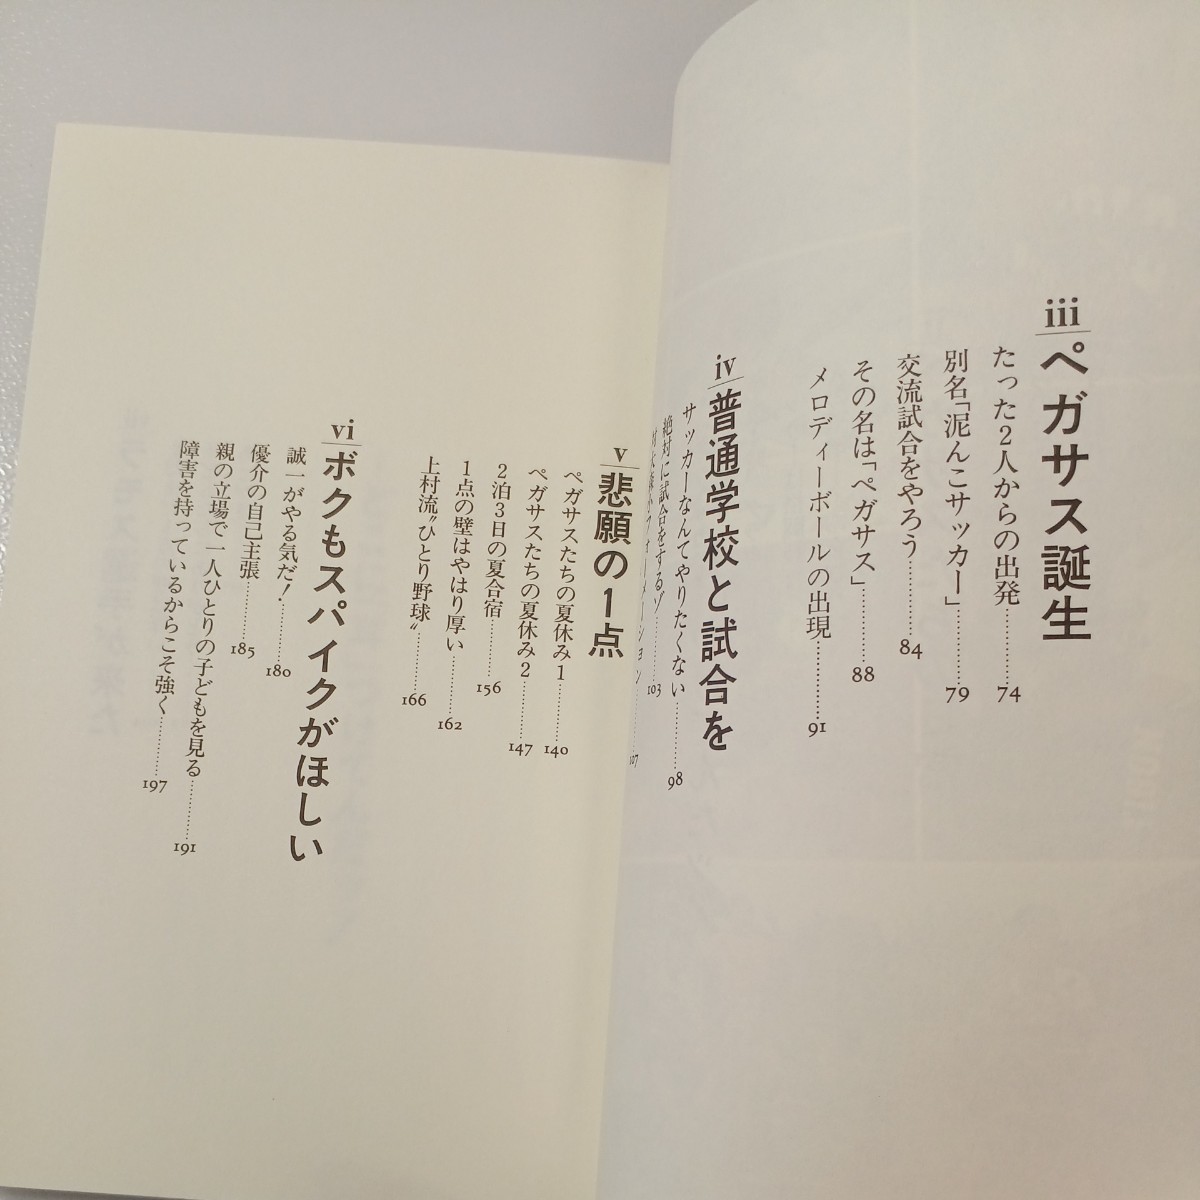 iii ペガサス誕生
たった2人からの出発………74
別名「泥んこサッカー」………79
交流試合をやろう………84
その名は「ペガサス」………88
メロディーボールの出現………91
iv 普通学校と試合を
サッカーなんてやりたくない………98
絶対に試合をするゾ………103
フォーメーション………107
v 悲願の1点
ペガサスたちの夏休み1………140
ペガサスたちの夏休み2………147
2泊3日の夏合宿………156
1点の壁はやはり厚い………162
上村流〝ひとり野球〟………166
vi ボクもスパイクがほしい
誠一がやる気だ!………180
優介の自己主張………185
親の立場で一人ひとりの子どもを見る………191
障害を持っているからこそ強く………197